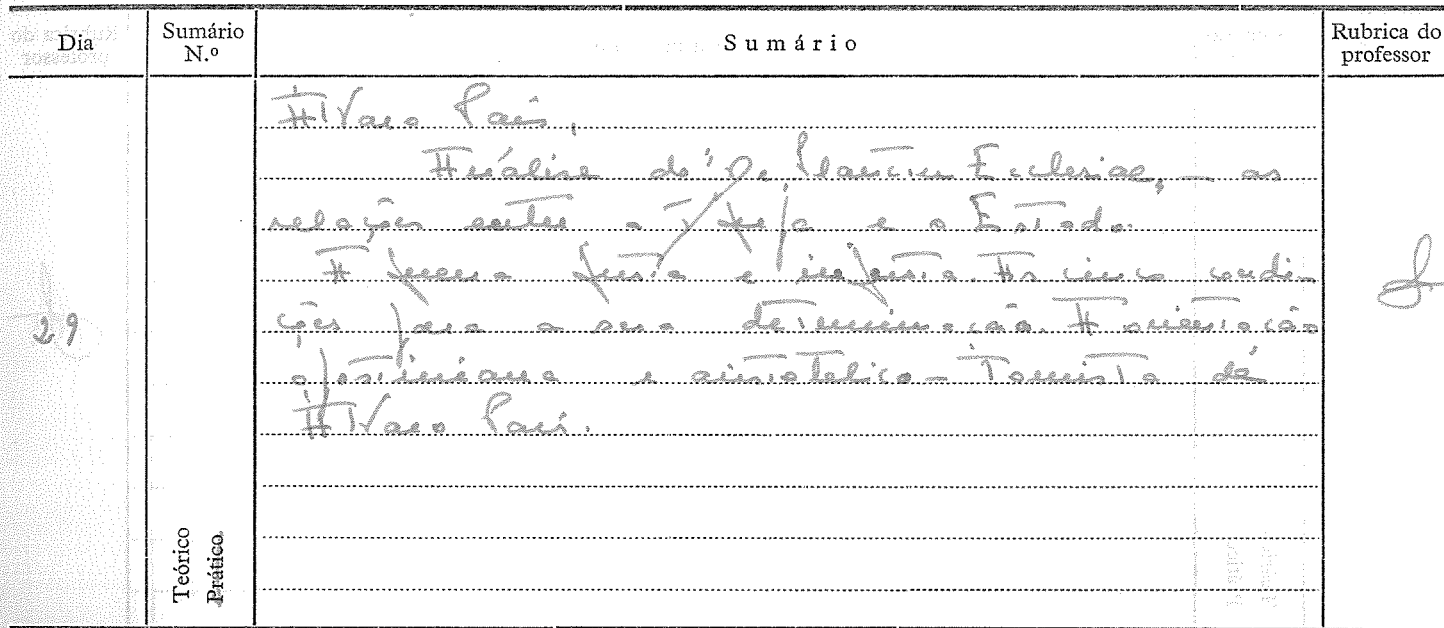 Dia
Sumário N.º
Sumário
Rubrica do professor
Alvaro Pais,
Análise do "De Planctu Ecclesiae, — as
relações entre a Igreja e o Estado.
A guerra justa e injusta. As cinco condi-
ções para a sua determinação. A orientação
agostiniana e aristotélico-Tomista de
Alvaro Pais.
29
Teórico
Prático